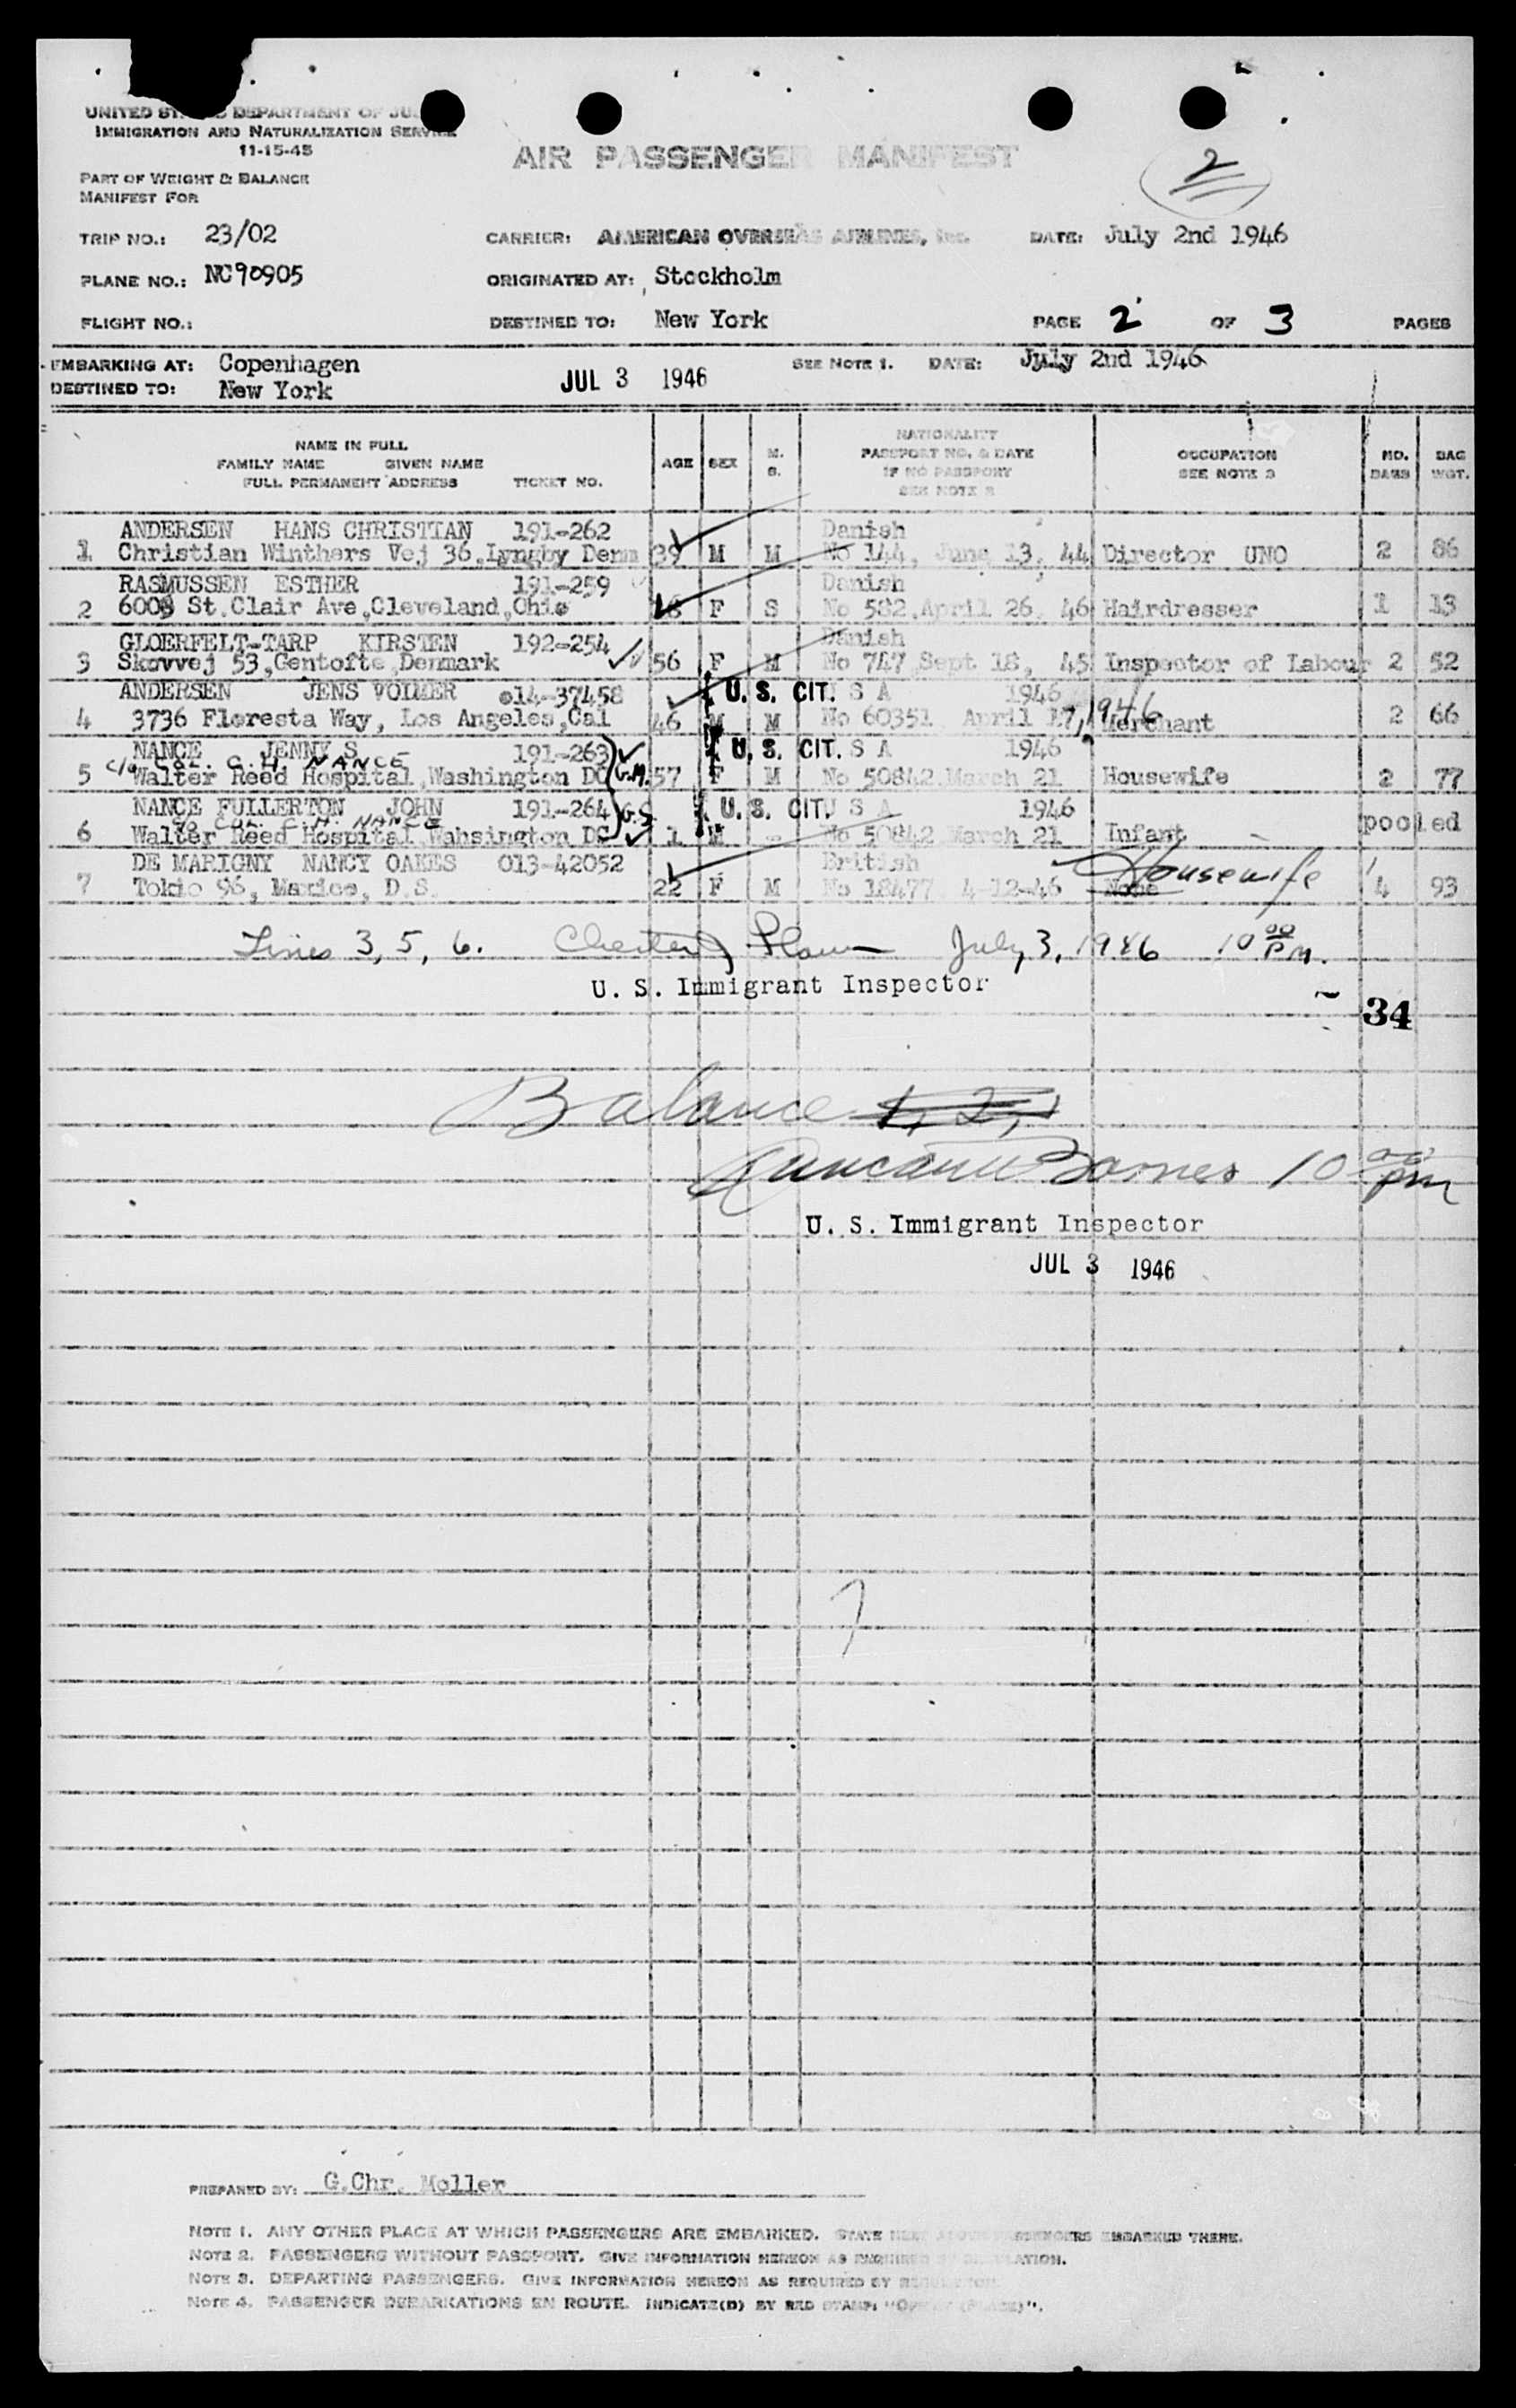 UNITED ST DEPARTMENT OF JU
IMMIGRATION AND NATURALIZATION SERVICE
11-15-45
AIR PASSENGER MANIFEST
2
PART OF WEIGHT & BALANCE
MANIFEST FOR
TRIP NO.: 23/02 CARRIER: AMERICAN OVERSEAS AIRLINES, Inc. DATE: July 2nd 1946
PLANE NO.: NC90905 ORIGINATED AT: Stockholm
FLIGHT NO.: DESTINED TO: New York PAGE 2 OF 3 PAGES
EMBARKING AT: Copenhagen SEE NOTE 1. DATE: July 2nd 1946
DESTINED TO: New York JUL 3 1946
NAME IN FULL
FAMILY NAME GIVEN NAME
FULL PERMANENT ADDRESS TICKET NO. AGE SEX M. S. NATIONALITY PASSPORT NO. & DATE IF NO PASSPORT SEE NOTE 2 OCCUPATION SEE NOTE 3 NO. BAGS BAG WGT.
ANDERSEN HANS CHRISTIAN 191-262 Danish
1 Christian Winthers Vej 36,Lyngby Denm 39 M M No 144, June 13, 44 Director UNO 2 86
RASMUSSEN ESTHER 191-259 Danish
2 6008 St.Clair Ave,Cleveland,Ohio F S No 582,April 26, 46 Hairdresser 1 13
GLOERFELT-TARP KIRSTEN 192-254 Danish
3 Skovvej 53,Gentofte,Denmark 56 F M No 747,Sept 18, 45 Inspector of Labour 2 52
ANDERSEN JENS VOLMER 014-37458 U. S. CIT. S A 1946
4 3736 Floresta Way, Los Angeles,Cal 46 M M No 60351 April 17, 1946 Merchant 2 66
NANCE JENNY S 191-263 U. S. CIT. S A 1946
c/o COL. C. H. NANCE
5 Walter Reed Hospital,Washington DC G.M. 57 F M No 50842.March 21 Housewife 2 77
NANCE FULLERTON JOHN 191-264 G.S. U. S. CIT. U S A 1946
c/o COL. C. H. NANCE
6 Walter Reed Hospital Wahsington DC 1 M - No 50842 March 21 Infant - pooled
DE MARIGNY NANCY OAKES 013-42052 British
7 Tokio 96, Mexico, D.S. 22 F M No 18477 4-12-46 None Housewife 4 93
Lines 3, 5, 6. Chester July, 3, 1946 10 00 P.M.
U. S. Immigrant Inspector
34
Balance 1, 2,
Barnes 10 00 pm
U. S. Immigrant Inspector
JUL 3 1946
7
PREPARED BY: G.Chr. Moller
NOTE 1. ANY OTHER PLACE AT WHICH PASSENGERS ARE EMBARKED. STATE PASSENGERS EMBARKED THERE.
NOTE 2. PASSENGERS WITHOUT PASSPORT. GIVE INFORMATION HEREON AS REQUIRED
NOTE 3. DEPARTING PASSENGERS. GIVE INFORMATION HEREON AS REQUIRED BY
NOTE 4. PASSENGER DEBARKATIONS EN ROUTE. INDICATE(D) BY RED STAMP: (PLACE)".